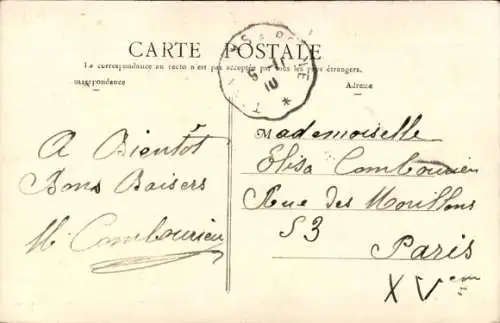 CARTE POSTALE
La correspondance au recto n'est pas acceptée par tous les pays étrangers.
Correspondance
Adresse
A Bientôt
Bons Baisers
M Combourieu
Mademoiselle
Elisa Combourieu
Rue des Morillons
53
Paris
XVem